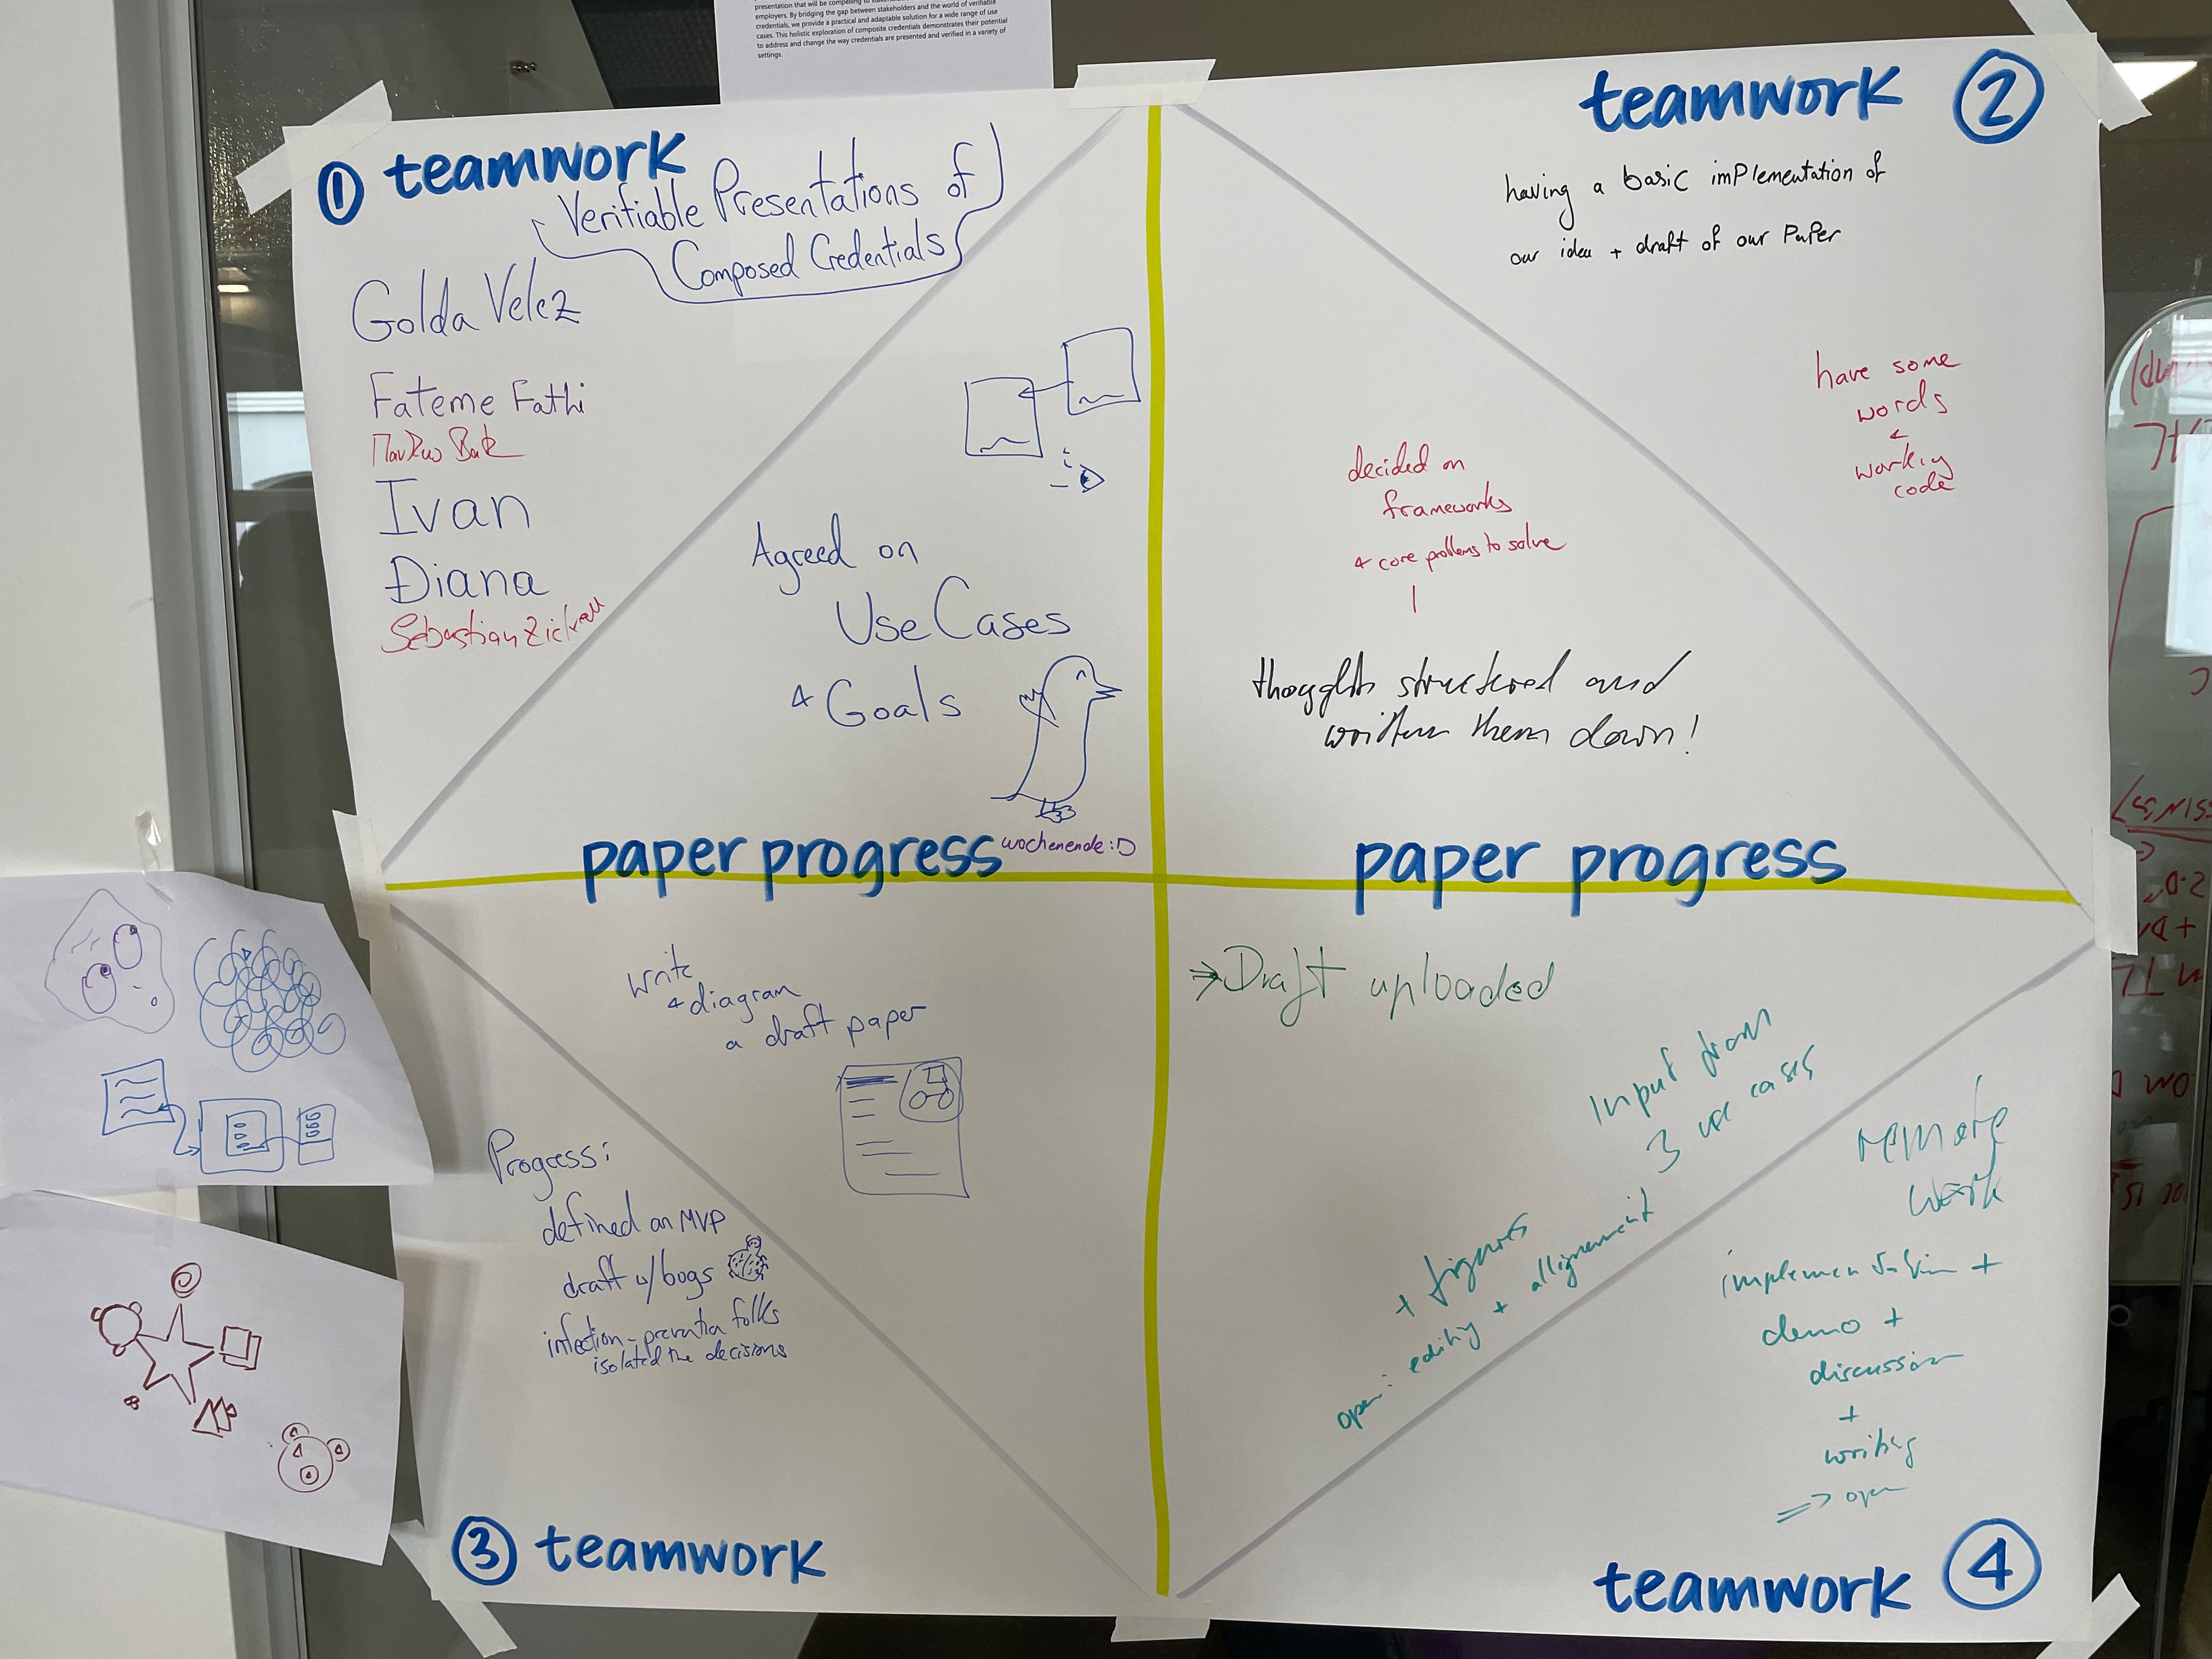 presentation that will be compelling to
employers. By bridging the gap between stakeholders and the world of verifiable
credentials, we provide a practical and adaptable solution for a wide range of use
cases. This holistic exploration of composite credentials demonstrates their potential
to address and change the way credentials are presented and verified in a variety of
settings.
1 teamwork
Verifiable Presentations of
Composed Credentials
Golda Velez
Fateme Fathi
Ivan
Diana
Sebastian
Agreed on
Use Cases
+ Goals
paper progress
wochenende :D
teamwork 2
having a basic implementation of
our idea + draft of our Paper
have some
words
+
working
code
decided on
frameworks
+ core problems to solve
thoughts structured and
written them down!
paper progress
write
+ diagram
a draft paper
Progress:
defined an MVP
draft w/bogs
infection-prevention folks
isolated the decisions
3 teamwork
⇒ Draft uploaded
Input from
3 use cases
+ figures
open: editing + allignement
remote
work
implementation +
demo +
discussion
+
writing
⇒ open
teamwork 4